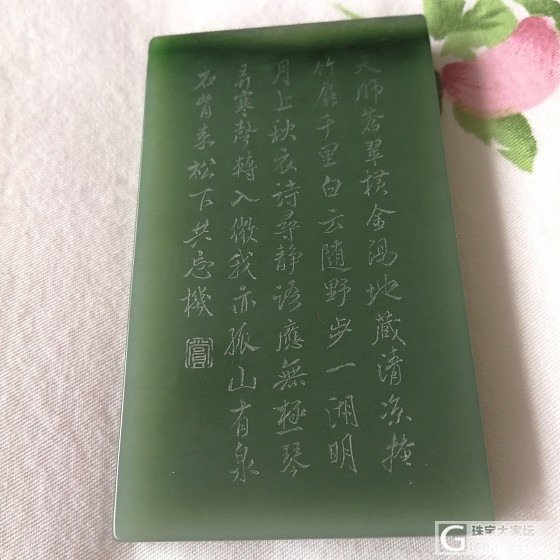 師蒼翠橫金地藏清凉掩
竹扉千里白云隨野步一湖明
月上秋衣詩尋静語應無極琴
弄寒聲轉入微我亦孤山有泉
石肯来松下共忘機
賞
珠宝大家坛